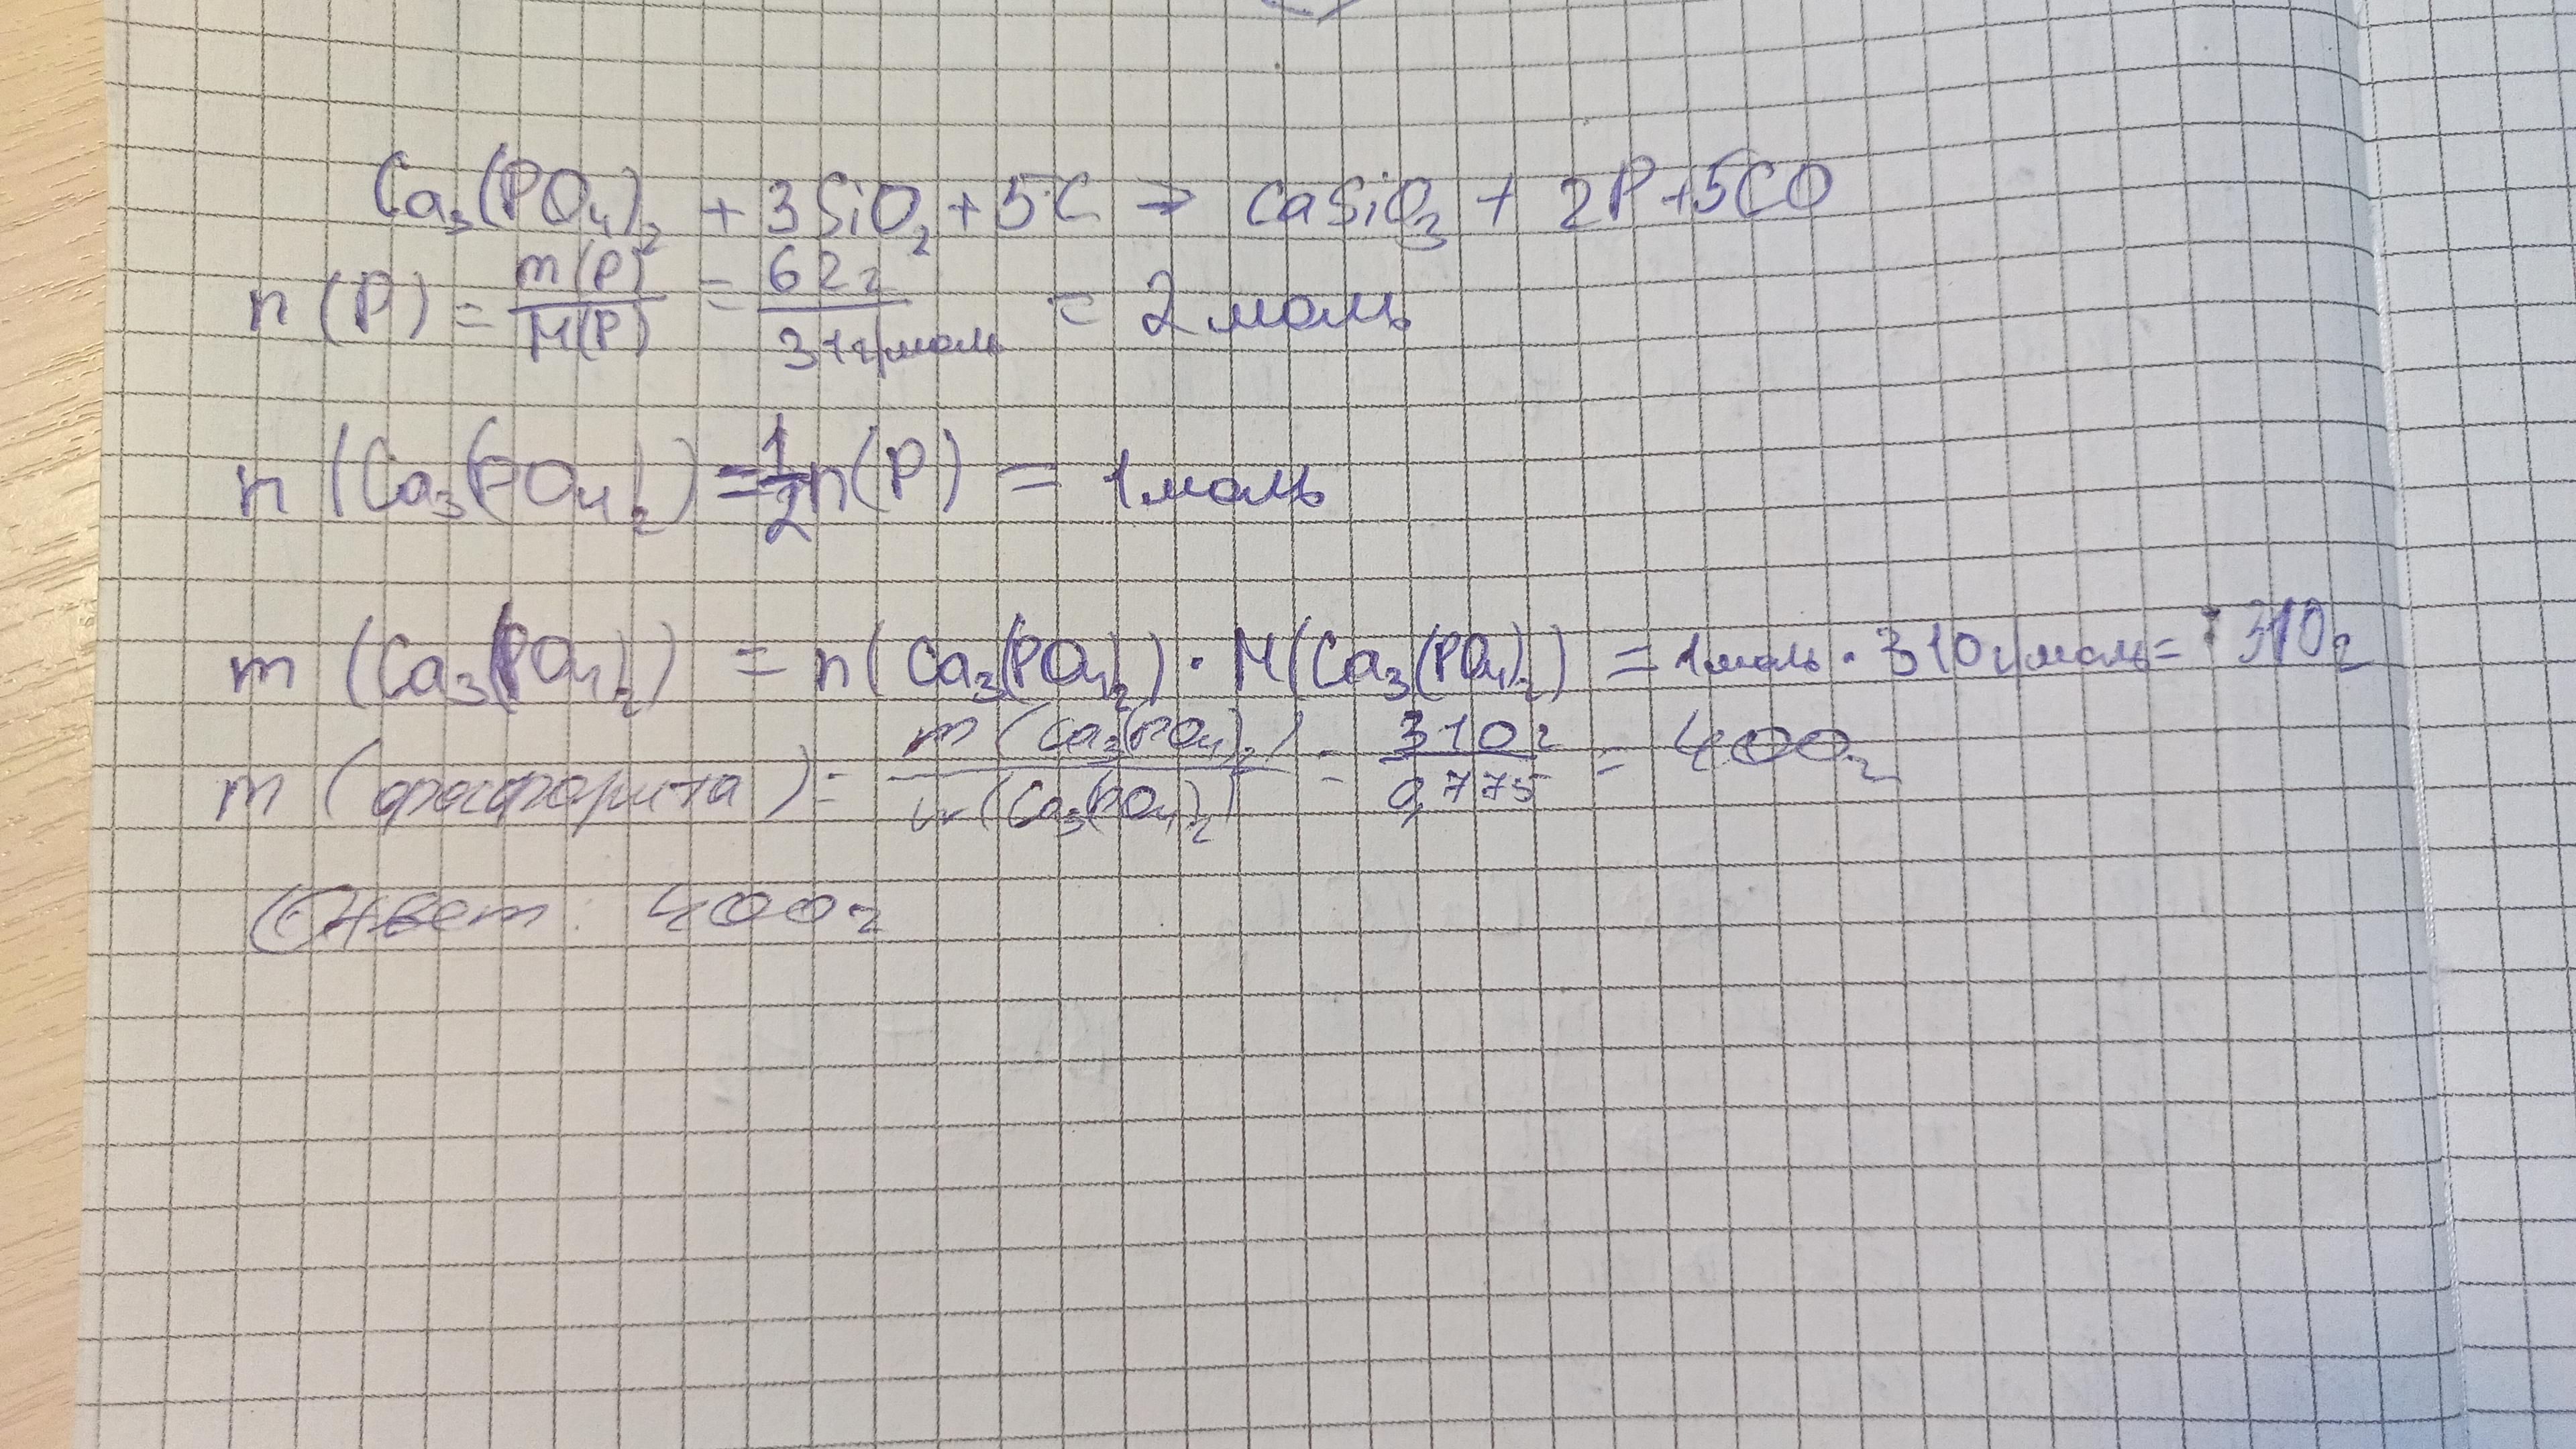 Ca₃(PO₄)₂ + 3SiO₂ + 5C → CaSiO₃ + 2P + 5CO
n(P) = m(P)/M(P) = 62г/31г/моль = 2 моль
n(Ca₃(PO₄)₂) = 1/2 n(P) = 1 моль
m(Ca₃(PO₄)₂) = n(Ca₃(PO₄)₂) · M(Ca₃(PO₄)₂) = 1 моль · 310 г/моль = 310 г
m(фосфорита) = m(Ca₃(PO₄)₂)/w(Ca₃(PO₄)₂) = 310 г/0,775 = 400 г
Ответ: 400 г